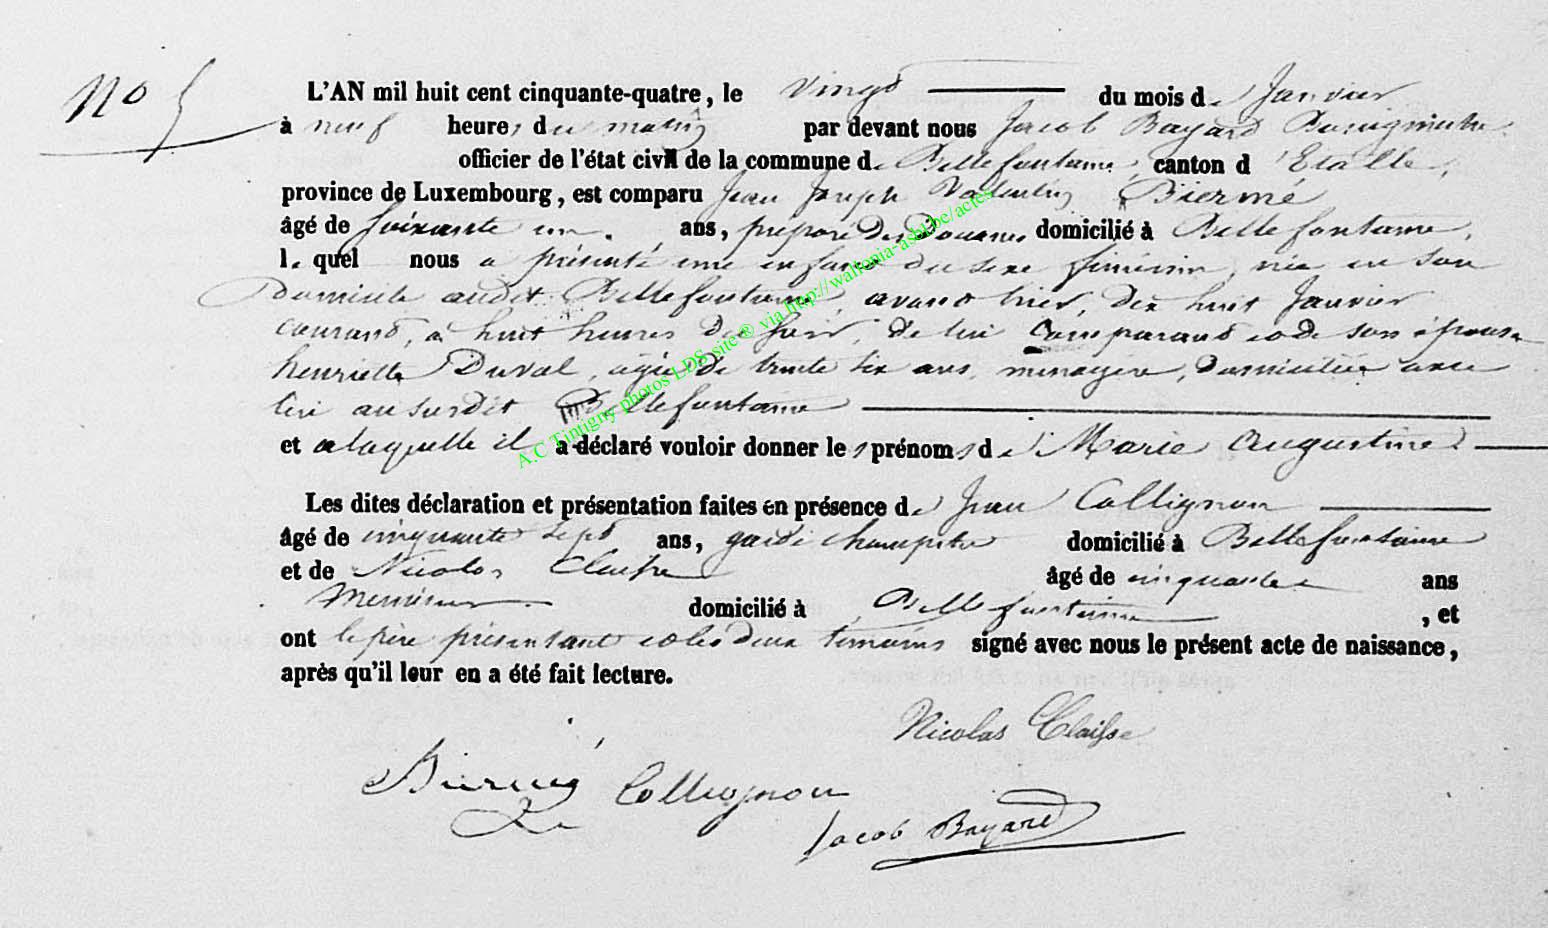 No 5
L'AN mil huit cent cinquante-quatre, le vingt du mois de Janvier
à neuf heures du matin par devant nous Jacob Bayard Bourgmestre
officier de l'état civil de la commune de Bellefontaine, canton d'Etalle,
province de Luxembourg, est comparu Jean Joseph Valentin Biermé
âgé de soixante un ans, préposé des Douanes domicilié à Bellefontaine,
lequel nous a présenté une enfant du sexe féminin, née en son
Domicile audit Bellefontaine, avant hier, dix huit Janvier
courant, à huit heures du soir, de lui comparant et de son épouse
henriette Duval, agée de trente six ans, menagère, domiciliée avec
lui au susdit Bellefontaine
et a laquelle il a déclaré vouloir donner les prénoms de Marie Augustine
Les dites déclaration et présentation faites en présence de Jean Collignon
âgé de cinquante sept ans, garde champetre domicilié à Bellefontaine
et de Nicolas Claisse âgé de cinquante ans
domicilié à Bellefontaine, et
ont le père présentant et les deux témoins signé avec nous le présent acte de naissance,
après qu'il leur en a été fait lecture.
Nicolas Claisse
Biermé Collignon
Jacob Bayard
A.C Tintigny photos LDS, site ® via http://wallonia-asbl.be/actes